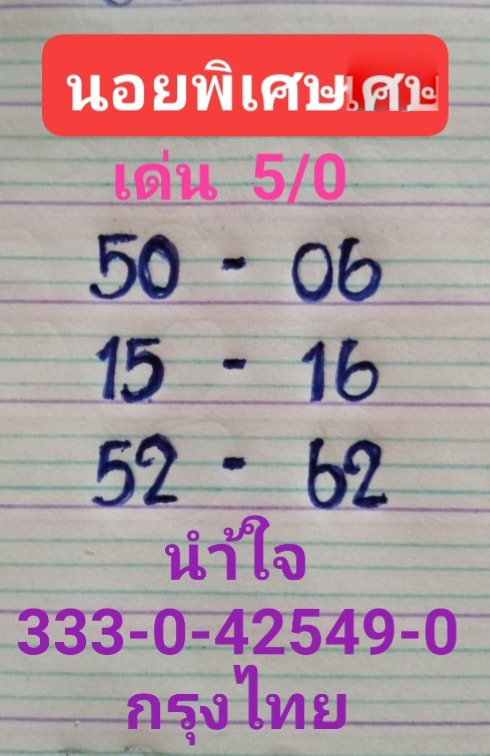 นอยพิเศษเศษ
เด่น 5/0
50 - 06
15 - 16
52 - 62
นำ้ใจ
333-0-42549-0
กรุงไทย